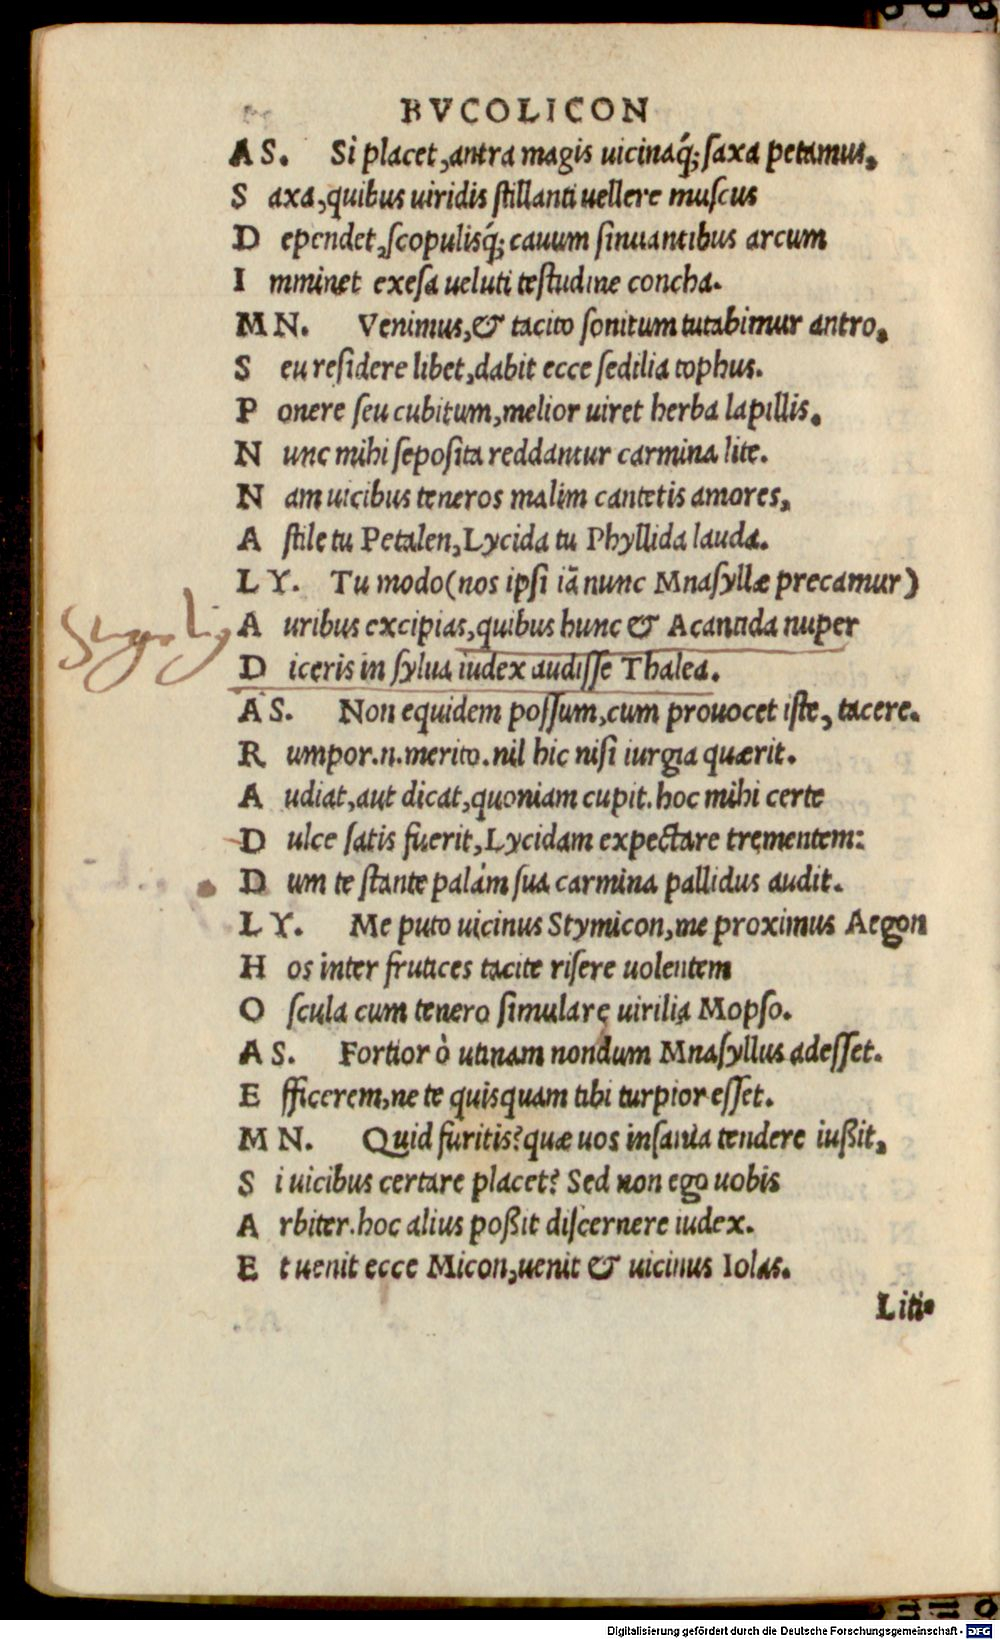 BVCOLICON
AS. Si placet, antra magis uicinaq́; saxa petamus,
S axa, quibus uiridis stillanti uellere muscus
D ependet, scopulisq́; cauum sinuantibus arcum
I mminet exesa ueluti testudine concha.
MN. Venimus, & tacito sonitum mutabimur antro,
S eu residere libet, dabit ecce sedilia tophus.
P onere seu cubitum, melior uiret herba lapillis.
N unc mihi seposita reddantur carmina lite.
N am uicibus teneros malim cantetis amores,
A stile tu Petalen, Lycida tu Phyllida lauda.
LY. Tu modo (nos ipsi iã nunc Mnasyllæ precamur)
A uribus excipias, quibus hunc & Acantida nuper
D iceris in sylua iudex audisse Thalea.
AS. Non equidem possum, cum prouocet iste, tacere.
R umpor.n.merito.nil hic nisi iurgia quærit.
A udiat, aut dicat, quoniam cupit. hoc mihi certe
D ulce satis fuerit, Lycidam expectare trementem:
D um te stante palàm sua carmina pallidus audit.
LY. Me puto uicinus Stymicon, me proximus Aegon
H os inter frutices tacite risere uolentem
O scula cum tenero simulare uirilia Mopso.
AS. Fortior ò utinam nondum Mnasyllus adesset.
E fficerem, ne te quisquam tibi turpior esset.
MN. Quid furitis? quæ uos insania tendere iußit,
S i uicibus certare placet? Sed non ego uobis
A rbiter. hoc alius poßit discernere iudex.
E t uenit ecce Micon, uenit & uicinus Iolas.
Liti-
Digitalisierung gefördert durch die Deutsche Forschungsgemeinschaft - DFG